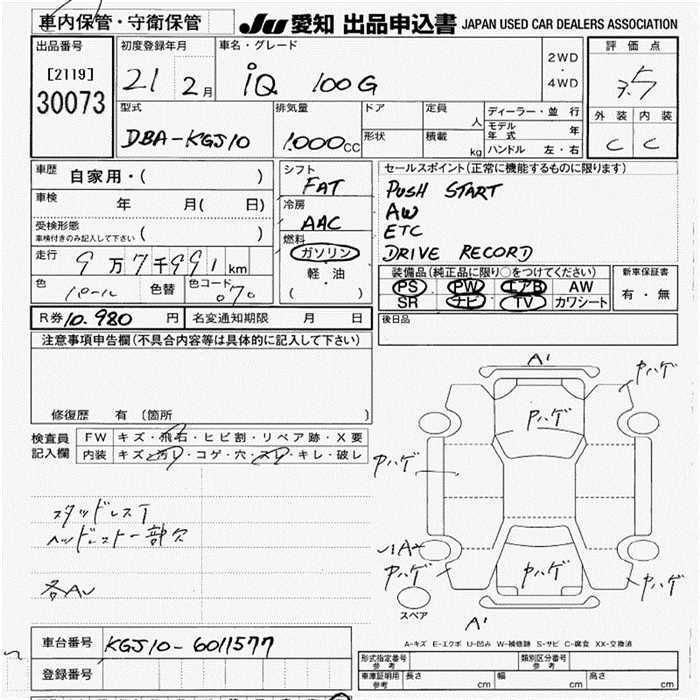 車内保管・守衛保管
JU 愛知 出品申込書 JAPAN USED CAR DEALERS ASSOCIATION
出品番号
[2119]
30073
初度登録年月
21 2月
車名・グレード
iQ 100G
2WD
・
4WD
評価点
3.5
外装 内装
C C
型式
DBA-KGJ10
排気量
1.000CC
ドア
形状
定員
人
積載
kg
ディーラー・並 行
モデル年式 年
ハンドル 左・右
車歴 自家用・( )
車検 年 月( 日)
受検形態
車検付きのみ記入して下さい ( )
走行 9万7千991km
色 パール 色替 色コード 070
シフト
FAT
冷房
AAC
燃料
ガソリン
軽・油
( )
セールスポイント(正常に機能するものに限ります)
PUSH START
AW
ETC
DRIVE RECORD
装備品(純正品に限り○をつけてください)
PS PW エアB AW
SR ナビ TV カワシート
新車保証書
有・無
R券 10.980 円 名変通知期限 月 日
後日品
注意事項申告欄(不具合内容等は具体的に記入して下さい)
修復歴 有 (箇所 )
検査員記入欄
FW キズ・飛石・ヒビ割・リペア跡・X要
内装 キズ・汚レ・コゲ・穴・スレ・キレ・破レ
スタッドレスT
ヘッドレスト一部欠
各AU
A'
Pハゲ
Pハゲ
Pハゲ
A2
Pハゲ
Pハゲ
Pハゲ
スペア
A'
A-キズ E-エクボ U-凹み W-補修跡 S-サビ C-腐食 XX-交換済
車台番号 KGJ10-6011577
登録番号
形式指定番号 参考
類別区分番号 参考
車庫証明用 参考 長さ cm 幅 cm 高さ cm